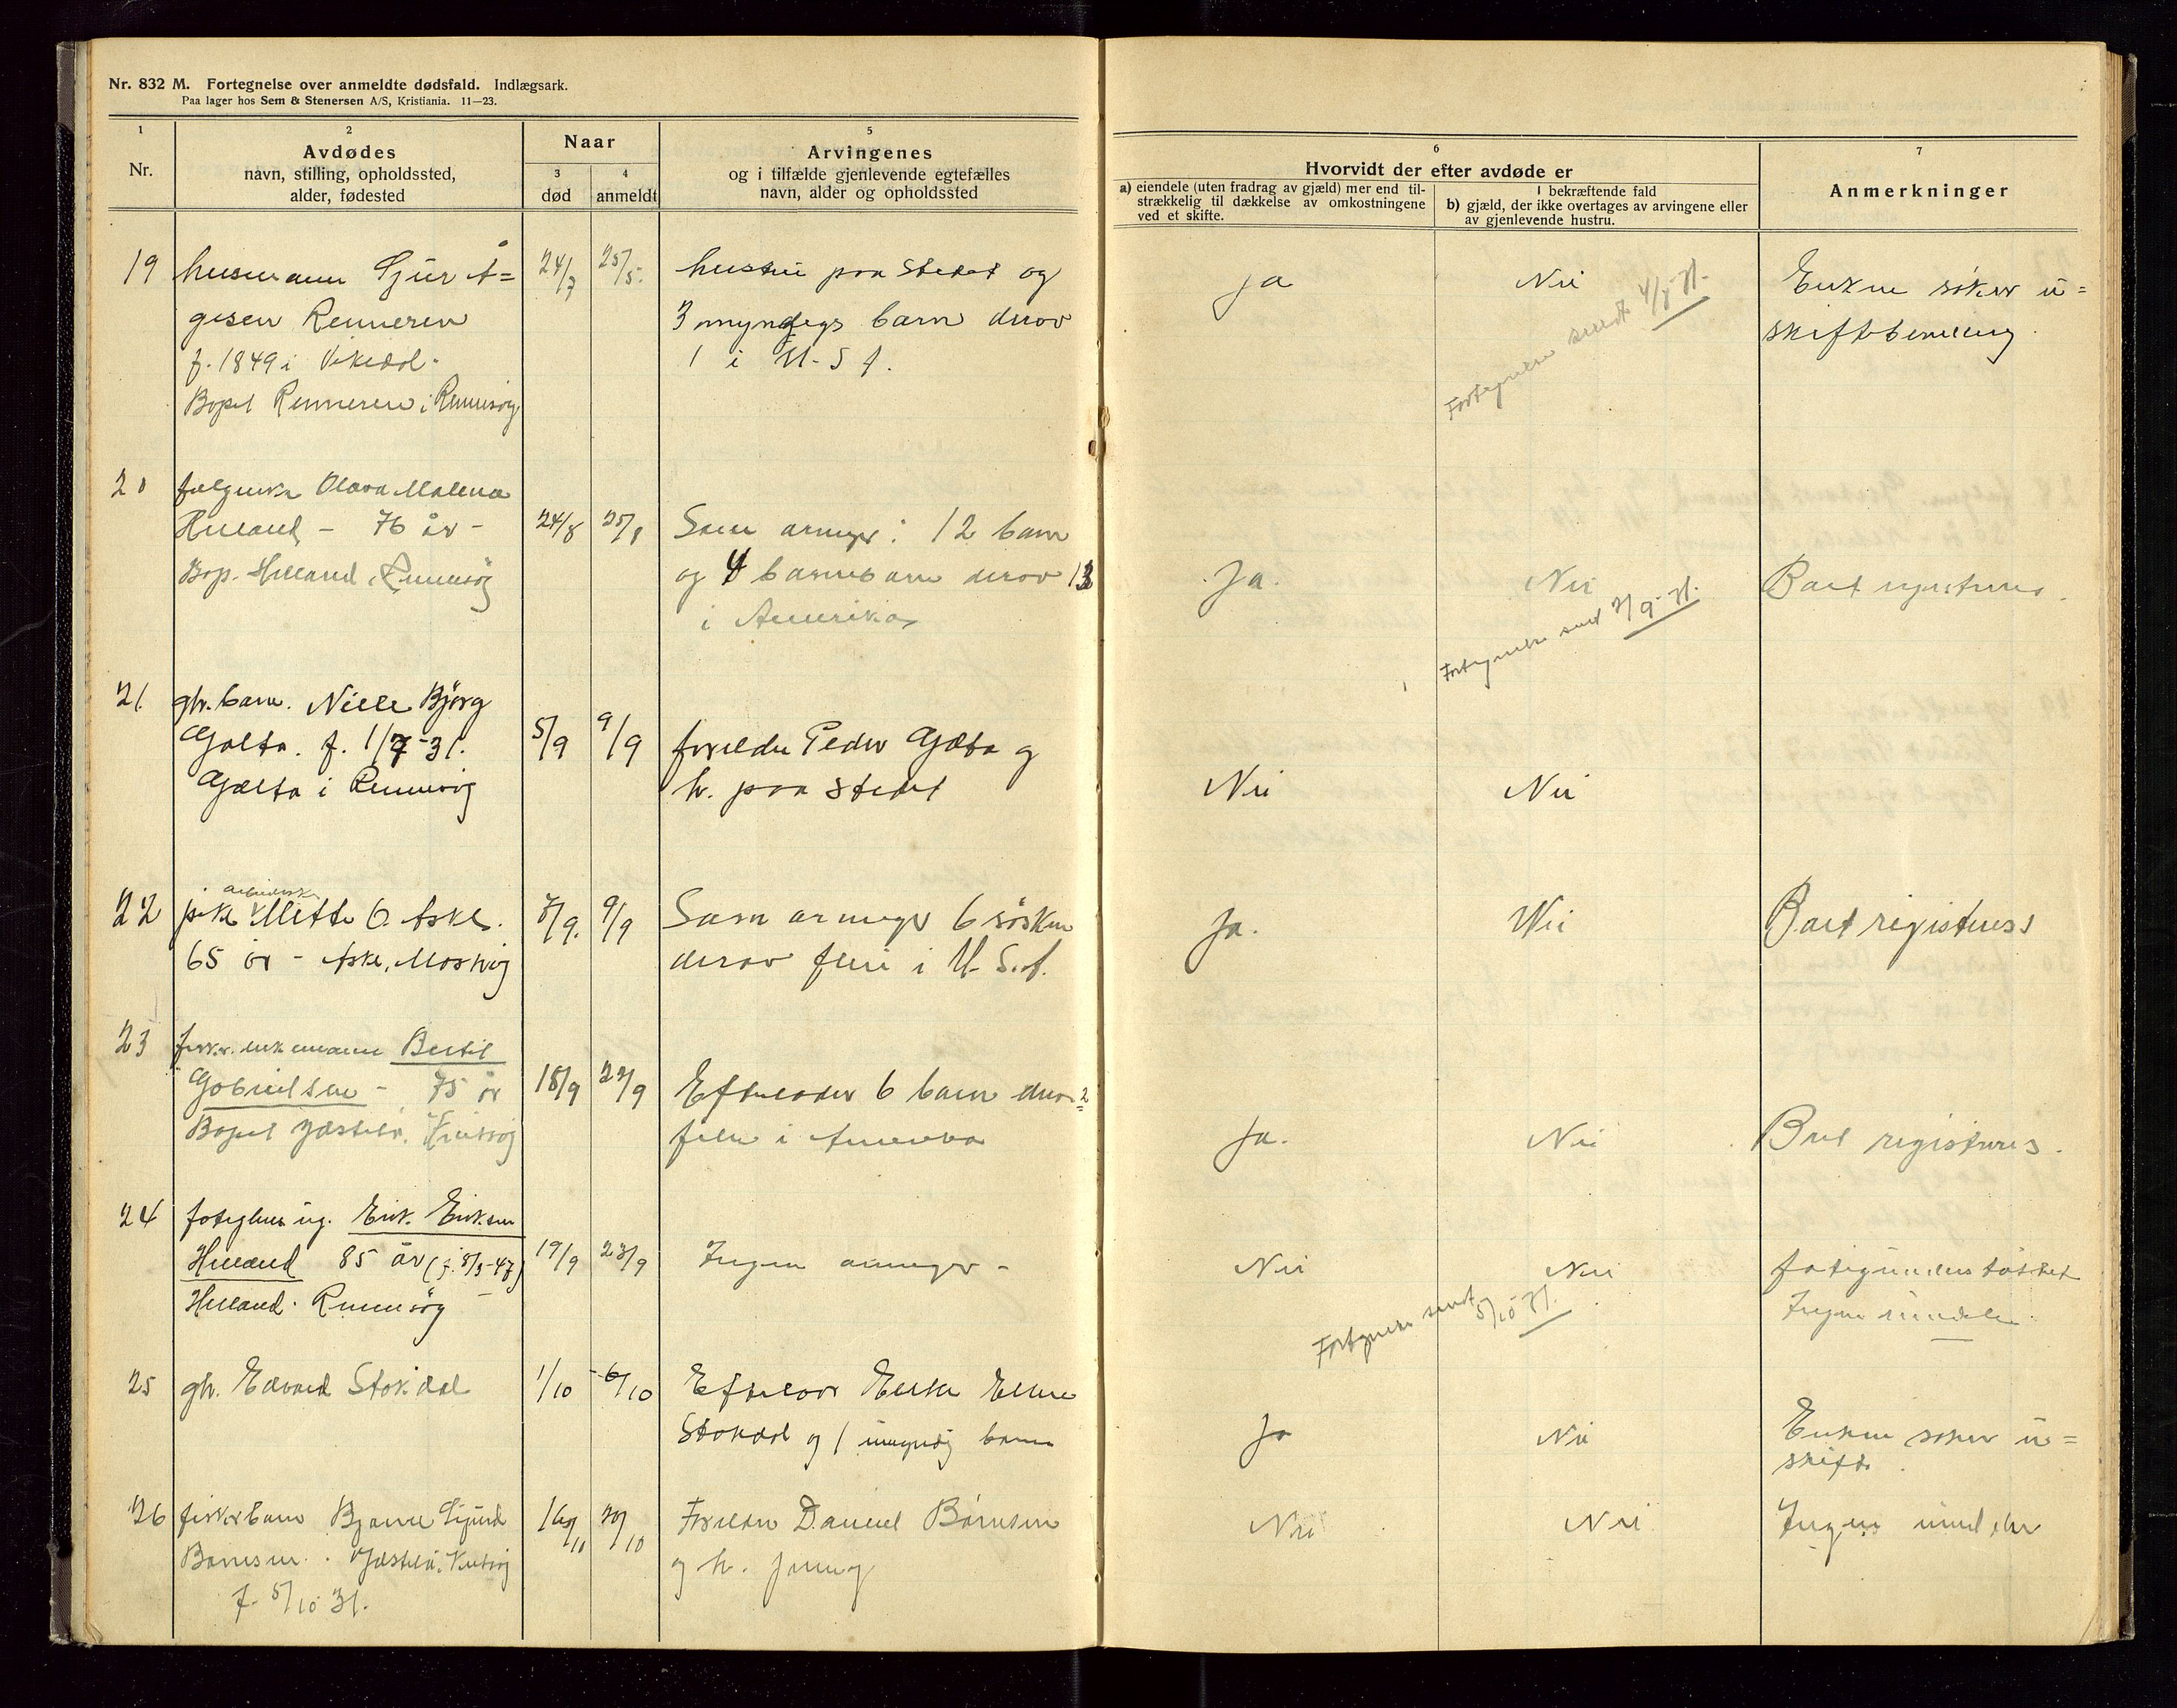 Nr. 832 M. Fortegnelse over anmeldte dødsfald. Indlægsark.
Paa lager hos Sem & Stenersen A/S, Kristiania. 11—23.
1
Nr.
2
Avdødes
navn, stilling, opholdssted,
alder, fødested
Naar
3
død
4
anmeldt
5
Arvingenes
og i tilfælde gjenlevende egtefælles
navn, alder og opholdssted
6
Hvorvidt der efter avdøde er
a) eiendele (uten fradrag av gjæld) mer end til-
strækkelig til dækkelse av omkostningene
ved et skifte.
I bekræftende fald
b) gjæld, der ikke overtages av arvingene eller
av gjenlevende hustru.
7
Anmerkninger
19 husmann Sjur Å=
gesen Renneren
f. 1849 i Vikedal.
Bopel Renneren i Rennesøy
24/7 25/5.
hustru paa stedet og
3 myndige barn derav
1 i U-S A.
Ja Nei
Fortegnelse sendt 4/8-31.
Enken søker u=
skiftbevilling.
20 Olava Malena
Helland - 76 år -
Bop. Helland, Rennesøy
24/8 25/8
Som arvinger: 12 barn
og 4 barnebarn derav 13
i Amerika
Ja. Nei
Fortegnelse sendt 2/9-31.
Boet registreres.
21. gbr. barn. Bjørg
Galta. f. 1/7-31.
Galta i Rennesøy
5/9 9/9
foreldre Peder Galta og
h. paa stedet
Nei Nei
22 pike arbeiderske Mette O. Aske.
65 år - Aske, Mosterøy
7/9. 9/9
Som arvinger 6 søsken
derav flere i U.S.A.
Ja. Nei
Boet registreres
23 fisker. enkemann Bertil
Gabrielsen - 75 år
Bopel Kvitsøy
18/9 22/9
Efterlader 6 barn derav 2
i Amerika
Ja. Nei
Boet registreres.
24 ug. Erik Eriksen
Helland 85 år (f. 8/3-47)
Helland. Rennesøy
19/9 23/9
Ingen arvinger -
Nei Nei
Fortegnelse sendt 5/10 31.
fatigunderstøttet
Ingen eiendeler.
25 gbr. Edvard Stokdal
1/10 -6/10
Efterlader Enke
Stokdal og 1 umyndig barn
Ja Nei
Enken søker u=
skifte.
26 fiskerbarn Bjarne Sigurd
Kvitsøy
f. 5/10 31.
/10
Foreldre Daniel
og h.
Nei Nei
Ingen eiendeler